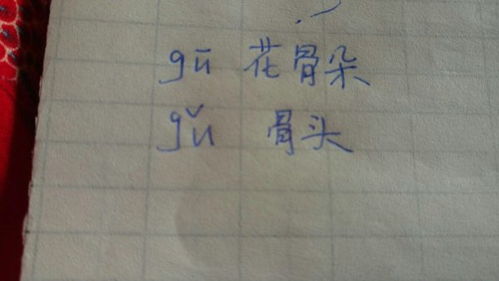 gū 花骨朵
gǔ 骨头